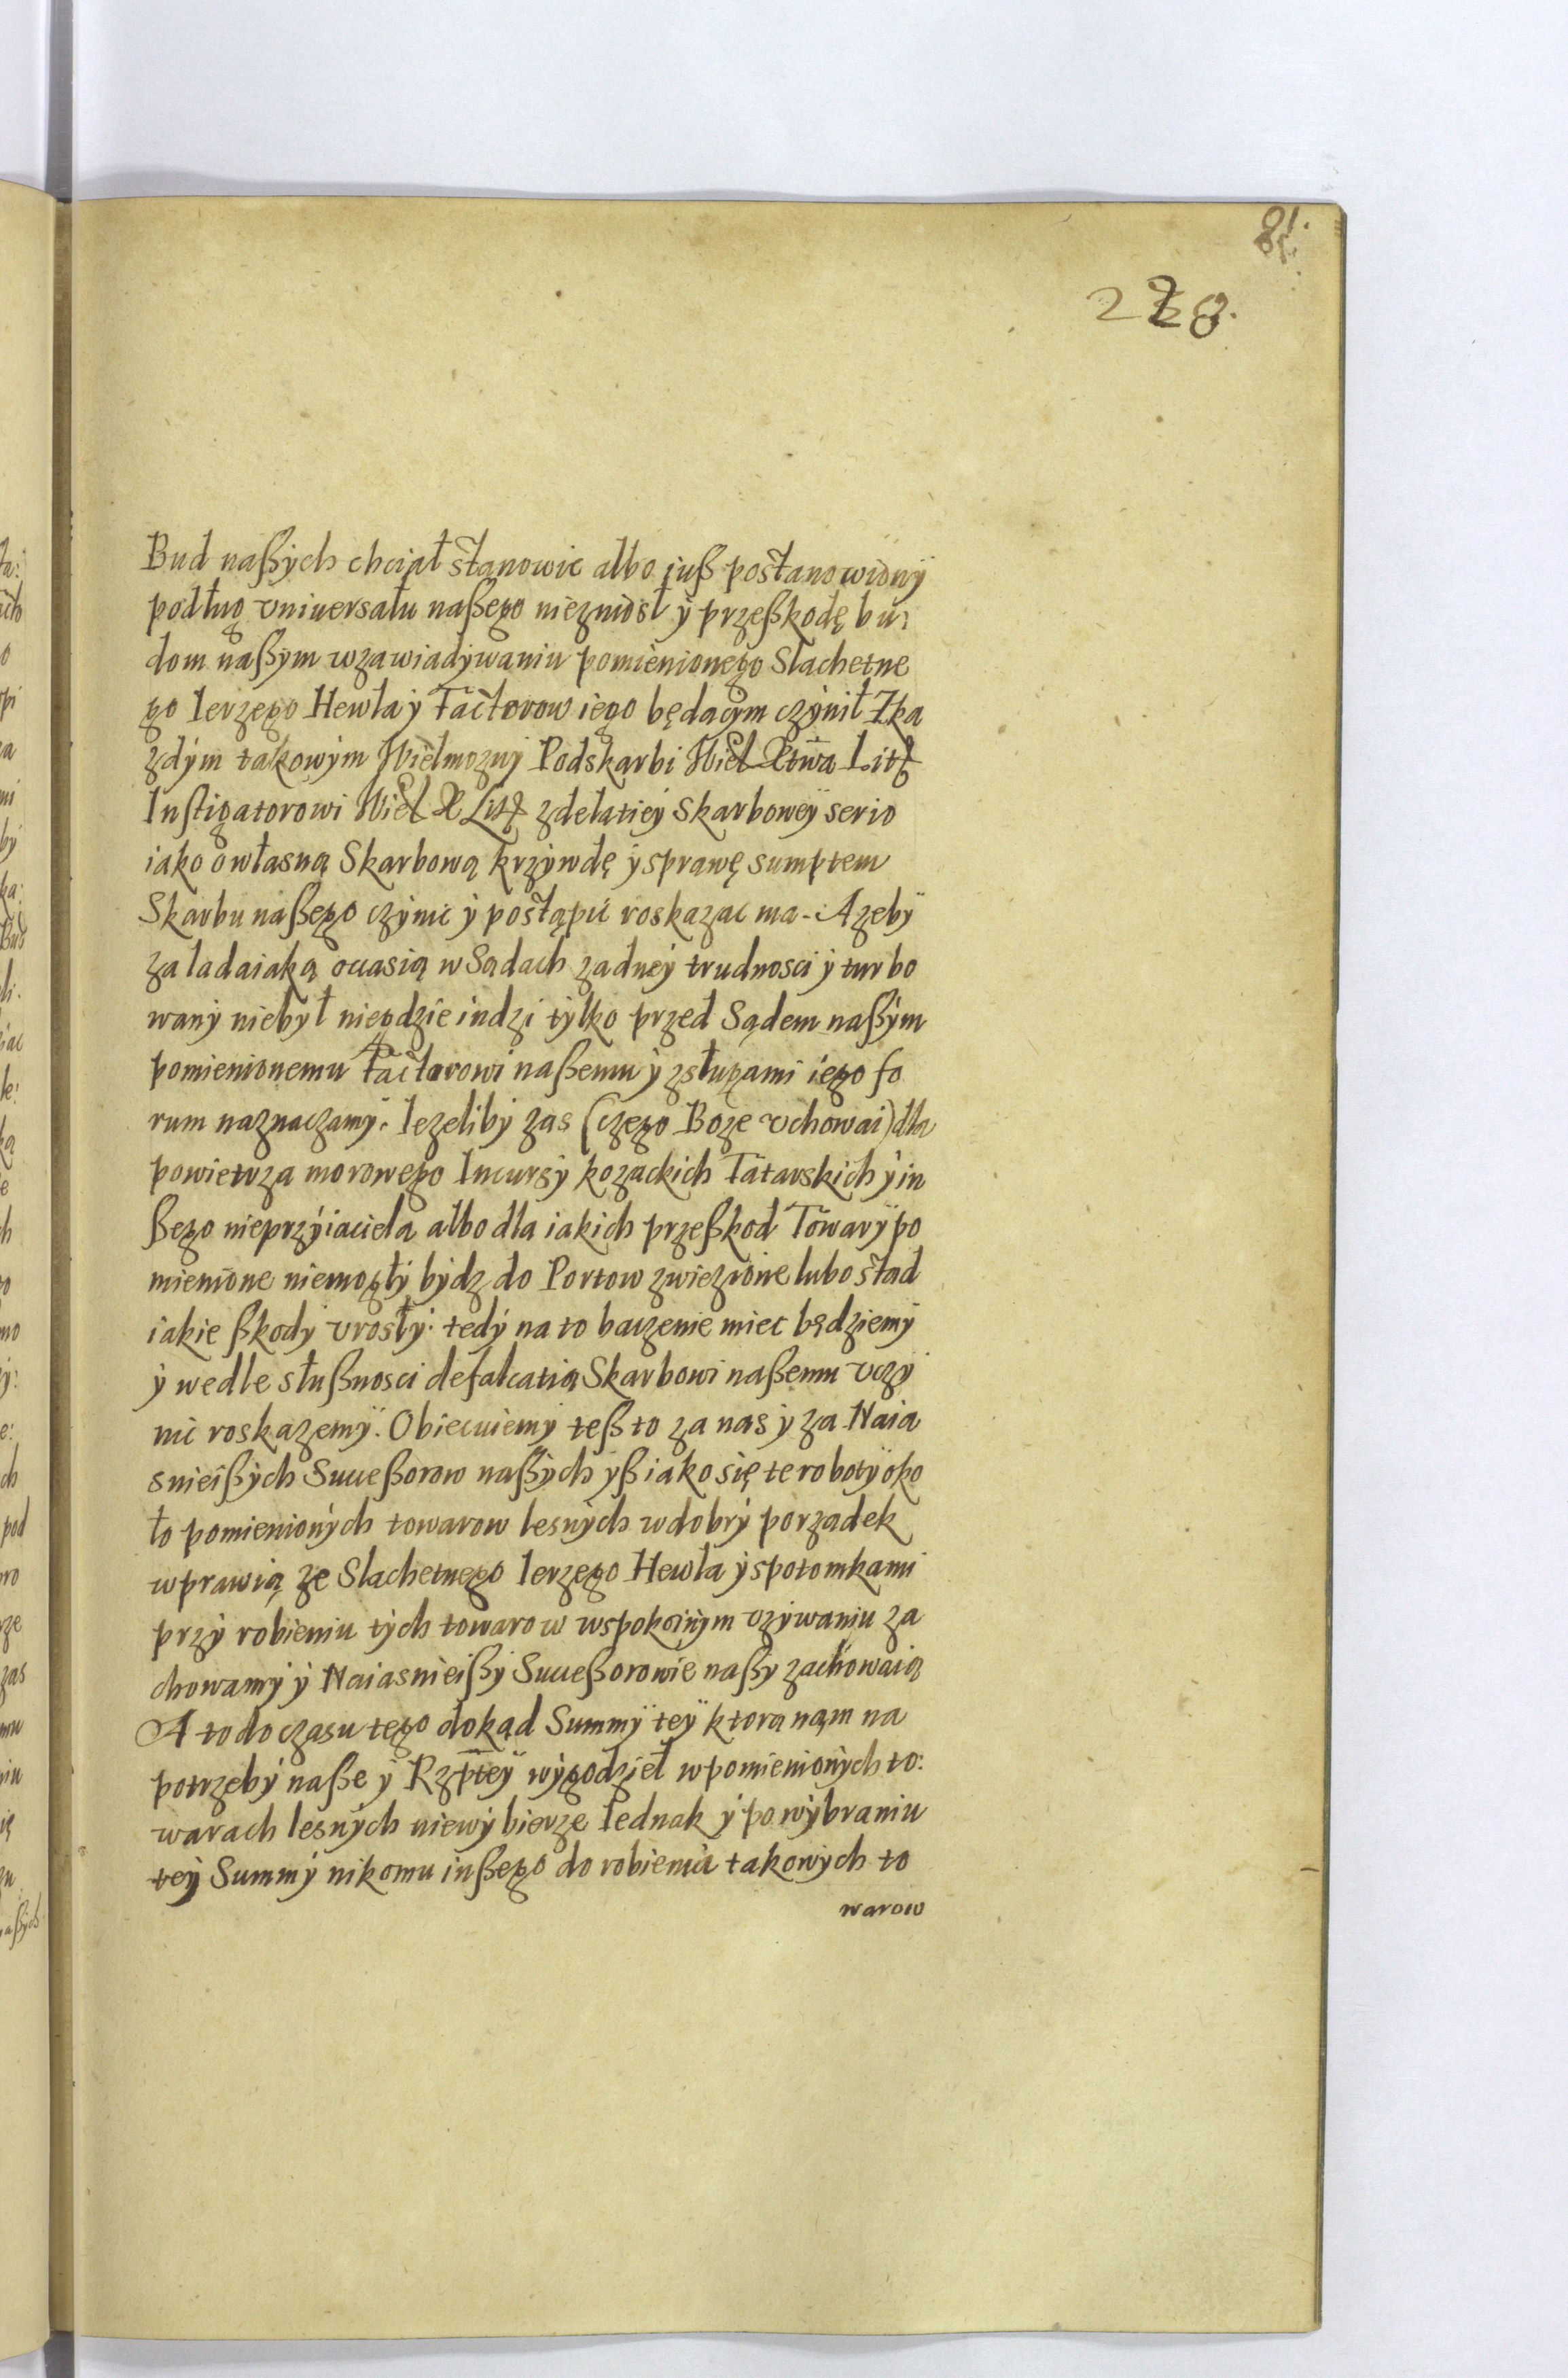 81.
228.
Bud naßÿch chciał stanowic albo juß postanowionÿ
podług vniuersału naßego niezniosł ÿ przeßkodę bu:
dom naßym wzawiadÿwaniu pomienionego Slachetne
go Ierzego Hewla ÿ Factorow iego będącym czÿnił Zka
zdÿm takowÿm Wielmoznÿ Podskarbi Wiel Xtwa Litt
Instigatorowi Wiel X Litt zdelatieÿ Skarboweÿ serio
iako owłasną Skarbową krzÿwdę ÿ sprawę sumptem
Skarbu naßego czÿnic ÿ postąpic roskazac ma. Azebÿ
za ladaiaką occasią w Sądach zadneÿ trudnosci ÿ turbo
wanÿ niebÿł niegdzie indzi tÿlko przed Sądem naßÿm
pomienionemu Factorowi naßemu ÿ zsługami iego fo
rum naznaczamÿ. Iezelibÿ zas (czego Boze vchowai) dla
powietrza morowego Incursÿ kozackich Tatarskich ÿ in
ßego nieprzÿiaciela albo dla iakich przeßkod Towarÿ po
mienione niemogłÿ bÿdz do Portow zwiezione lubo stad
iakie ßkodÿ vrosłÿ. tedÿ na to baczenie miec będziemÿ
ÿ wedle słußnosci defalcatią Skarbowi naßemu vczÿ
nic roskazemÿ. Obiecuiemÿ teß to za nas ÿ za Naia
snieißÿch Succeßorow naßÿch ÿß iako się te robotÿ oko
ło pomienionÿch towarow lesnÿch wdobrÿ porzadek
wprawią ze Slachetnego Ierzego Hewla ÿ spotomkami
przÿ robieniu tÿch towarow wspokoinÿm vzÿwaniu za
chowamÿ ÿ Naiasnieißÿ Succeßorowie naßÿ zachowaią
A to do czasu tego dokąd Summÿ teÿ ktorą nąm na
potrzebÿ naße ÿ Rzpteÿ wÿgodzieł wpomienionÿch to:
warach lesnÿch niewÿbierze Iednak ÿ po wÿbraniu
teÿ Summÿ nikomu inßego do robienia takowÿch to
warow